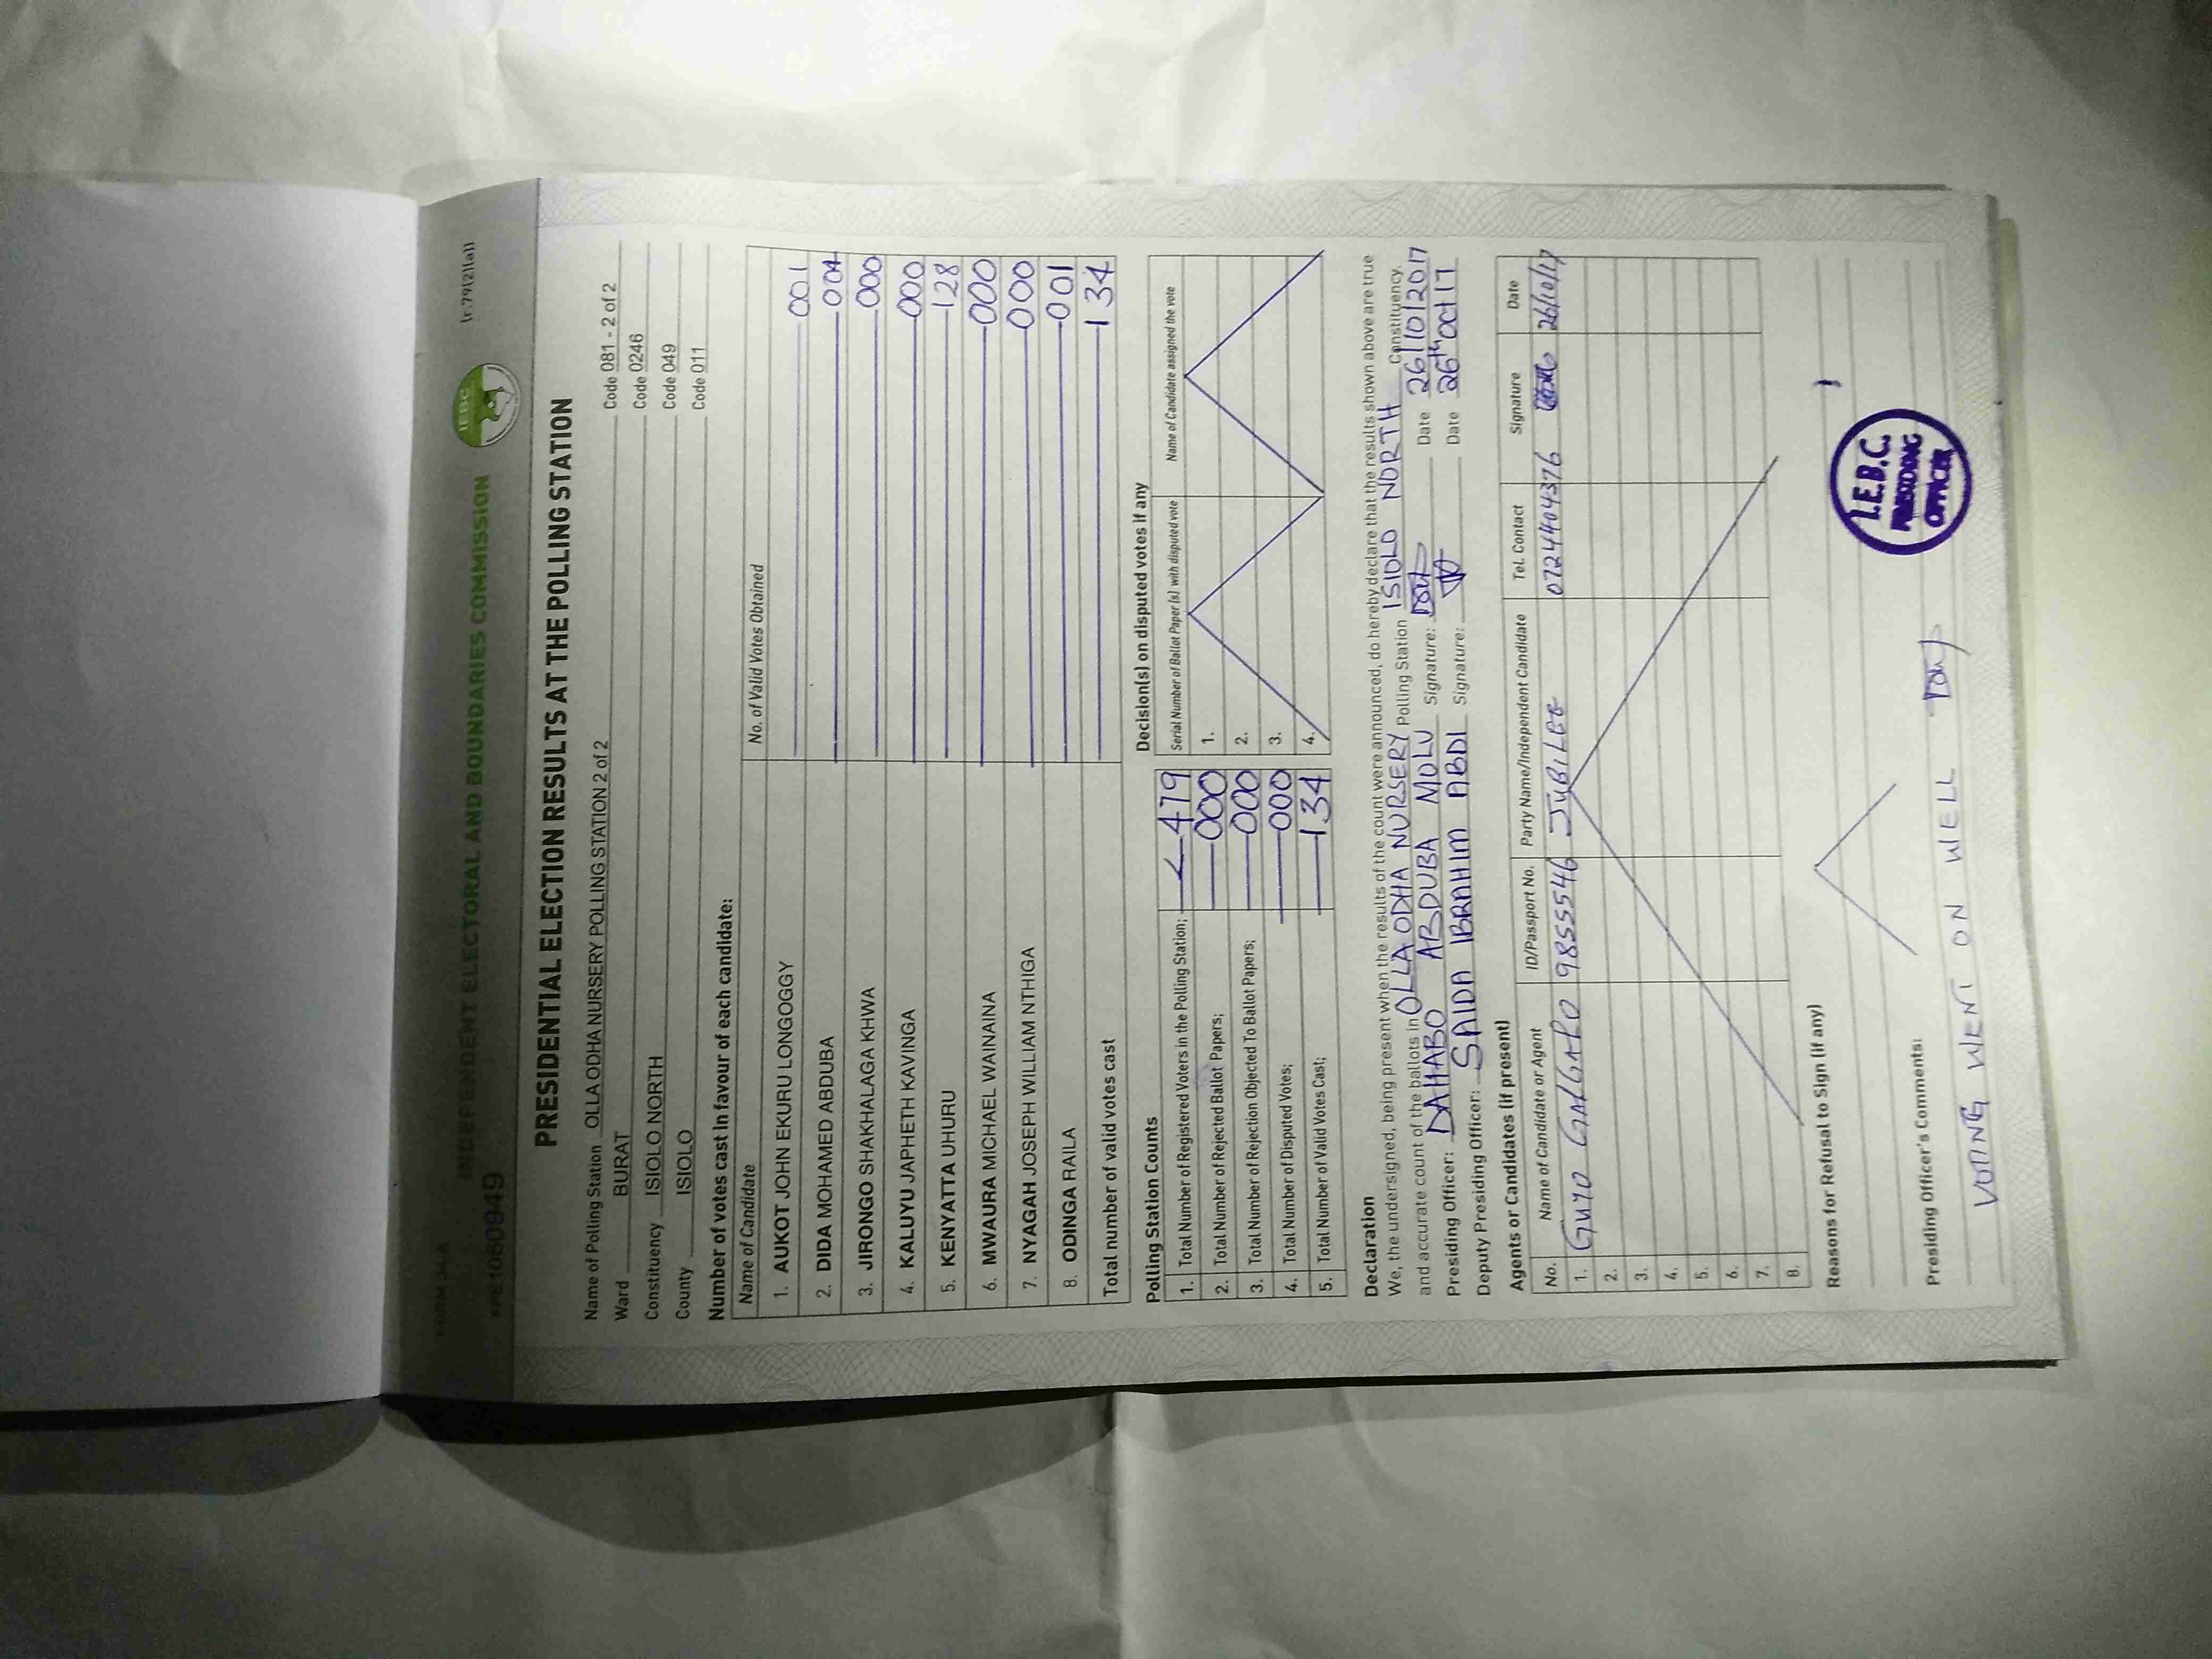 FORM 34A (r.79(2)(a))
INDEPENDENT ELECTORAL AND BOUNDARIES COMMISSION
IEBC
PRESIDENTIAL ELECTION RESULTS AT THE POLLING STATION
Name of Polling Station OLLA ODHA NURSERY POLLING STATION 2 of 2 Code 081 - 2 of 2
Ward BURAT Code 0246
Constituency ISIOLO NORTH Code 049
County ISIOLO Code 011
Number of votes cast in favour of each candidate:
Name of Candidate No. of Valid Votes Obtained
1. AUKOT JOHN EKURU LONGOGGY 001
2. DIDA MOHAMED ABDUBA 004
3. JIRONGO SHAKHALAGA KHWA 000
4. KALUYU JAPHETH KAVINGA 000
5. KENYATTA UHURU 128
6. MWAURA MICHAEL WAINAINA 000
7. NYAGAH JOSEPH WILLIAM NTHIGA 000
8. ODINGA RAILA 001
Total number of valid votes cast 134
Polling Station Counts
1. Total Number of Registered Voters in the Polling Station; 479
2. Total Number of Rejected Ballot Papers; 000
3. Total Number of Rejection Objected To Ballot Papers; 000
4. Total Number of Disputed Votes; 000
5. Total Number of Valid Votes Cast; 134
Decision(s) on disputed votes if any
Serial Number of Ballot Paper(s) with disputed vote Name of Candidate assigned the vote
1.
2.
3.
4.
Declaration
We, the undersigned, being present when the results of the count were announced, do hereby declare that the results shown above are true
and accurate count of the ballots in OLLA ODHA NURSERY Polling Station ISIOLO NORTH Constituency.
Presiding Officer: DAHABO ABDUBA MOLU Signature: Date 26/10/2017
Deputy Presiding Officer: SAIDA IBRAHIM ABDI Signature: Date 26th Oct 17
Agents or Candidates (if present)
No. Name of Candidate or Agent ID/Passport No. Party Name/Independent Candidate Tel. Contact Signature Date
1. GUYO GALGALO 9855546 JUBILEE 0724404376 26/10/17
2.
3.
4.
5.
6.
7.
8.
Reasons for Refusal to Sign (if any)
Presiding Officer's Comments:
VOTING WENT ON WELL
I.E.B.C.
PRESIDING
OFFICER